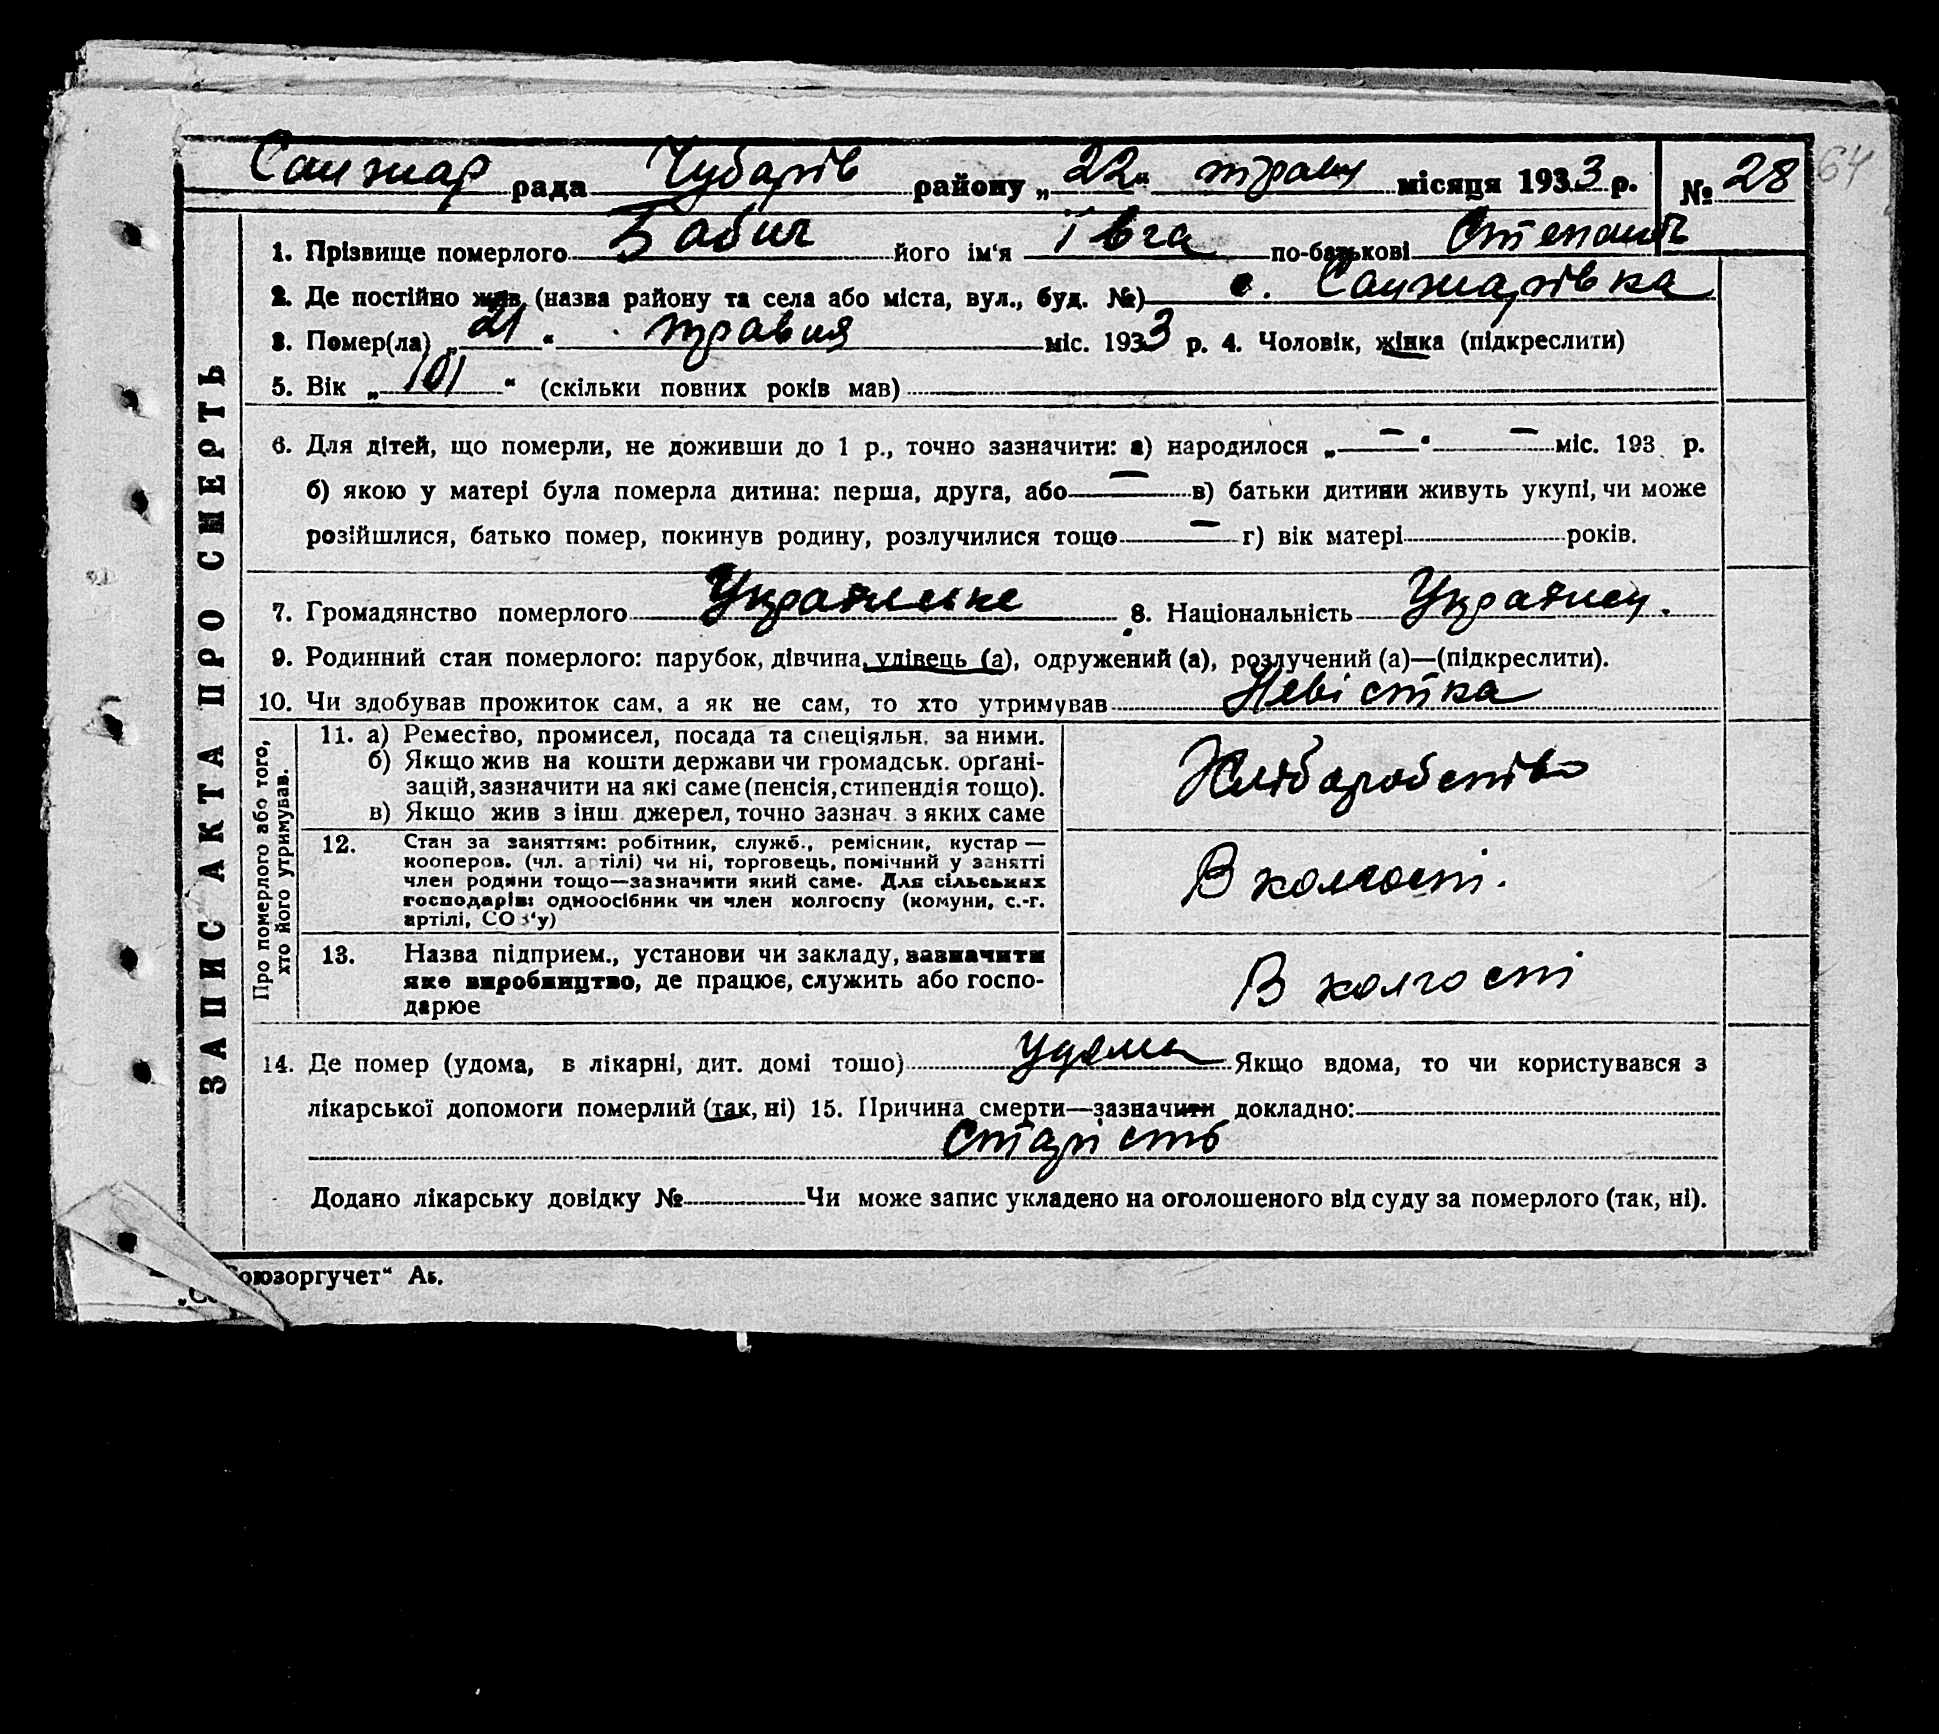 Санжар рада Чубарів району „22“ травн місяця 1933 р. № 28
64
1. Прізвище померлого Бабич його ім'я Івга по-батькові Степанів
2. Де постійно жив (назва району та села або міста, вул., буд. №) с. Санжарівка
3. Помер(ла) „21“ травня міс. 1933 р. 4. Чоловік, жінка (підкреслити)
5. Вік „101“ (скільки повних років мав)
6. Для дітей, що померли, не доживши до 1 р., точно зазначити: а) народилося „—“ — міс. 193 р.
б) якою у матері була померла дитина: перша, друга, або — в) батьки дитини живуть укупі, чи може
розійшлися, батько помер, покинув родину, розлучилися тощо — г) вік матері років.
7. Громадянство померлого Українське 8. Національність Українец.
9. Родинний стан померлого: парубок, дівчина, удівець (а), одружений (а), розлучений (а)—(підкреслити).
10. Чи здобував прожиток сам, а як не сам, то хто утримував Невістка
ЗАПИС АКТА ПРО СМЕРТЬ
Про померлого або того,
хто його утримував.
11. а) Ремество, промисел, посада та спеціяльн. за ними.
б) Якщо жив на кошти держави чи громадськ. орґані-
зацій, зазначити на які саме (пенсія, стипендія тощо).
в) Якщо жив з інш. джерел, точно зазнач. з яких саме
Хліборобство
12. Стан за заняттям: робітник, служб., ремісник, кустар —
кооперов. (чл. артілі) чи ні, торговець, помічний у занятті
член родини тощо—зазначити який саме. Для сільських
господарів: одноосібник чи член колгоспу (комуни, с.-г.
артілі, СОЗ'у)
В колгоспі.
13. Назва підприєм., установи чи закладу, зазначити
яке виробництво, де працює, служить або госпо-
дарює
В колгоспі
14. Де помер (удома, в лікарні, дит. домі тошо) удома Якщо вдома, то чи користувався з
лікарської допомоги померлий (так, ні) 15. Причина смерти—зазначити докладно:
Старість
Додано лікарську довідку № Чи може запис укладено на оголошеного від суду за померлого (так, ні).
„Союзоргучет“ Аб.